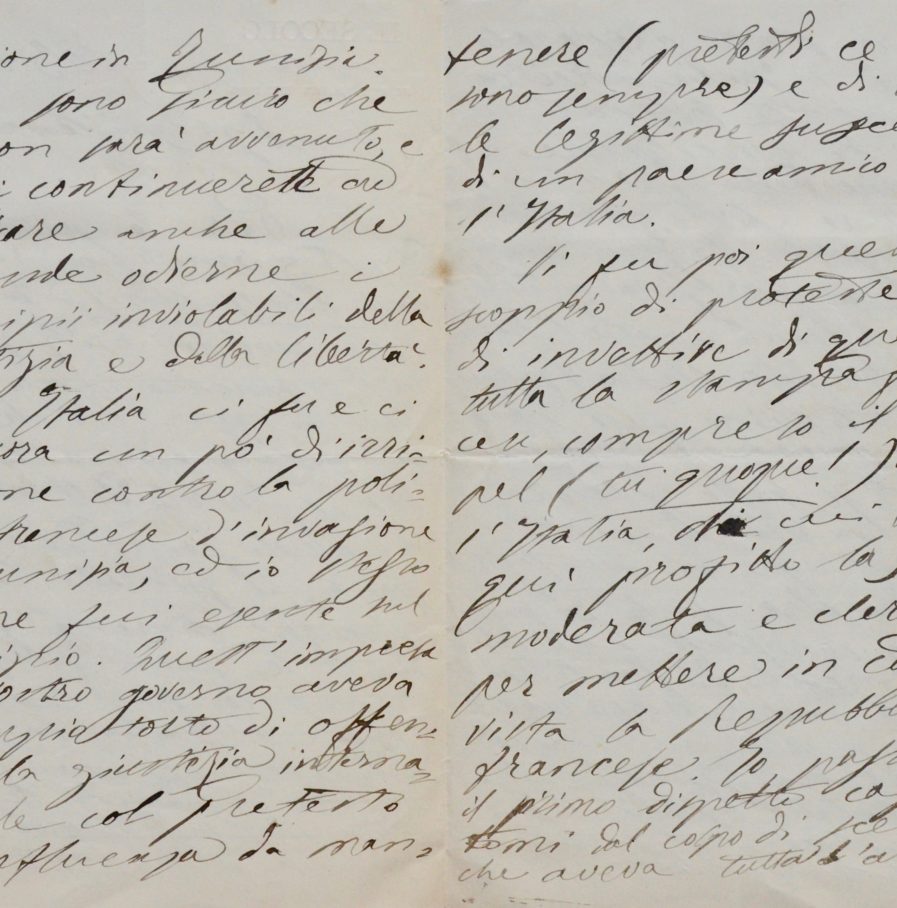 ione in Tunisia.
sono sicuro che
on sarà avvenuto, e
i continuerete ad
are anche alle
nde odierne i
ipii inviolabili della
tizia e della libertà.
Italia ci fu e ci
ora un pò d'irri-
ne contro la poli-
francese d'invasione
unisia, ed io stesso
ne fui esente sul
ipio. Quell'impresa
ostro governo aveva
torto di offen-
la giustizia interna-
le col pretesto
nfluenza da man-
tenere (pretesti ce
sono sempre) e di
le legittime susce
di un paese amico
l'Italia.
Vi fu poi quel
scoppio di proteste
di invettive di qu
tutta la stampa
ces, compreso il
pel (tu quoque!)
l'Italia, di cui
qui profittò la
moderata e cler
per mettere in
vista la Repubb
francese. Io, pass
il primo dispetto ca
tomi dal colpo di sce
che aveva tutta l'a